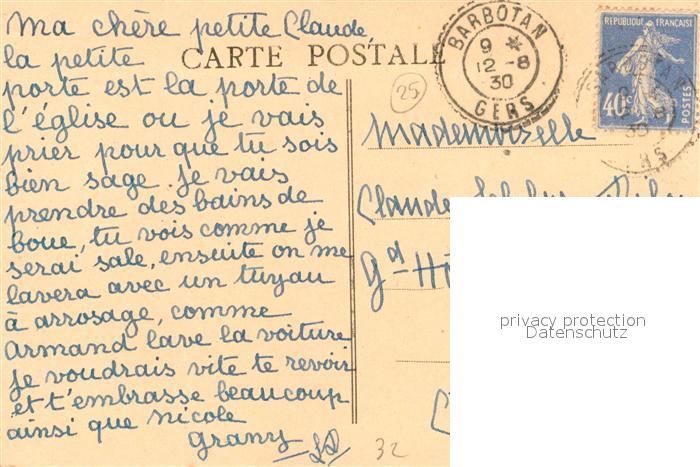 Ma chère petite Claude,
la petite
porte est la porte de
l'église ou je vais
prier pour que tu sois
bien sage. Je vais
prendre des bains de
boue, tu vois comme je
serai sale, ensuite on me
lavera avec un tuyau
à arrosage, comme
Armand lave la voiture
je voudrais vite te revoir
et t'embrasse beaucoup
ainsi que Nicole
Grany
CARTE POSTALE
25
BARBOTAN
9 *
12-8
30
GERS
REPUBLIQUE FRANÇAISE
40c
POSTES
Mademoiselle
Claude
Gd
32
privacy protection
Datenschutz